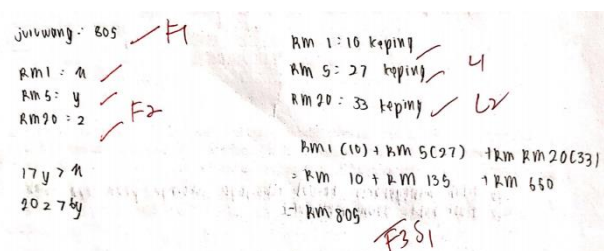 juruwang: 805 F1
RM1 : n
RM5: y F2
RM20 : 2
17y > n
RM 1 : 10 keping
RM 5 : 27 keping
RM 20 : 33 keping L2
RM1 (10) + RM 5(27) +RM RM 20(33)
= RM 10 + RM 135 + RM 660
= RM 805
F3 S1